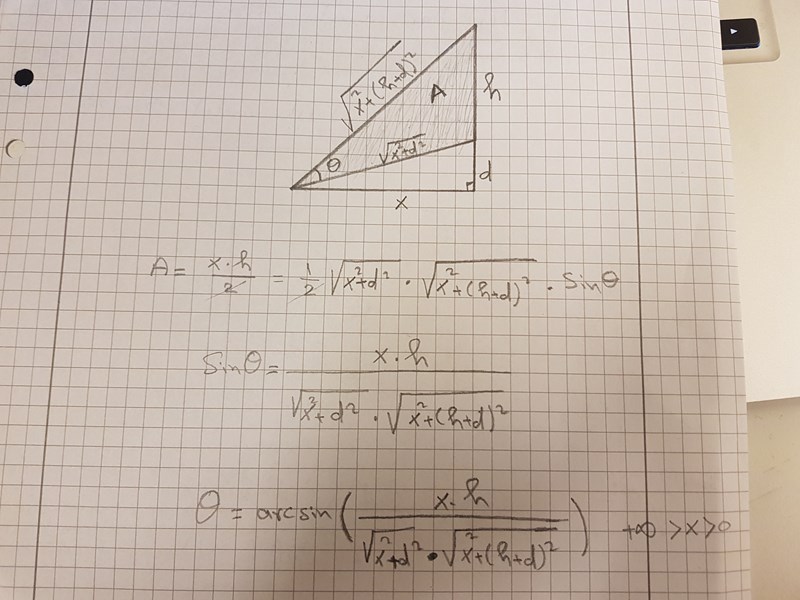 √x²+(h+d)²
A
h
θ
√x²+d²
d
x
A = x·h/2 = 1/2 √x²+d² · √x²+(h+d)² · Sinθ
Sinθ = x·h / √x²+d² · √x²+(h+d)²
θ = arcsin( x·h / √x²+d² · √x²+(h+d)² ) +∞ > x > 0